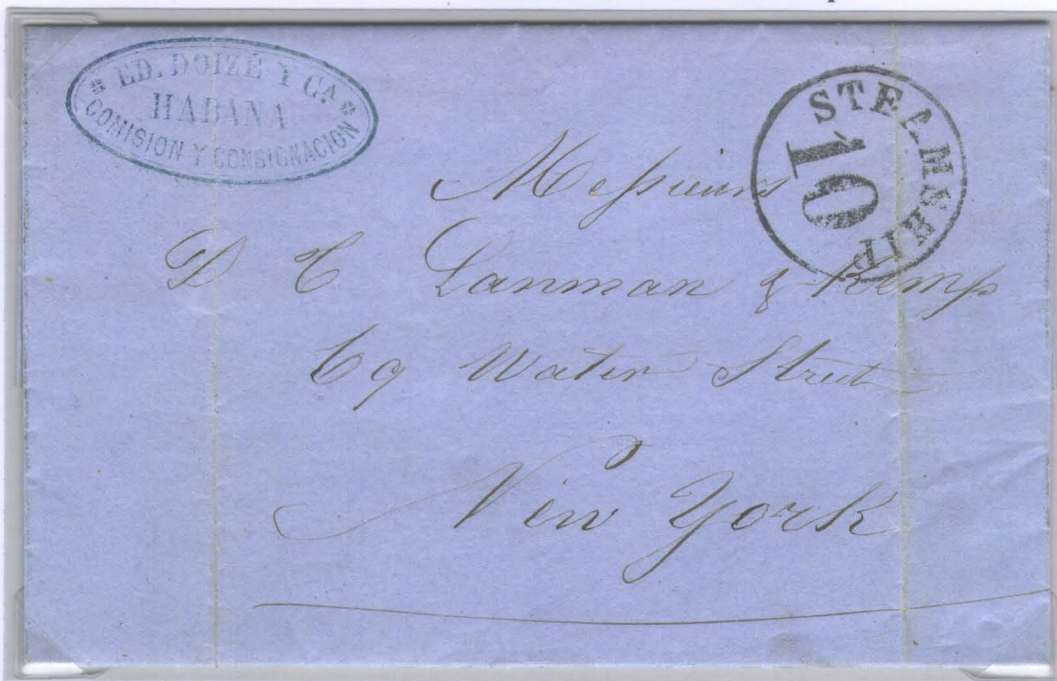 ED. DOIZÉ Y Cª
HABANA
COMISION Y CONSIGNACION
STEAMSHIP
10
Messieurs
D C Lanman & Kemp
69 Water Street
New York